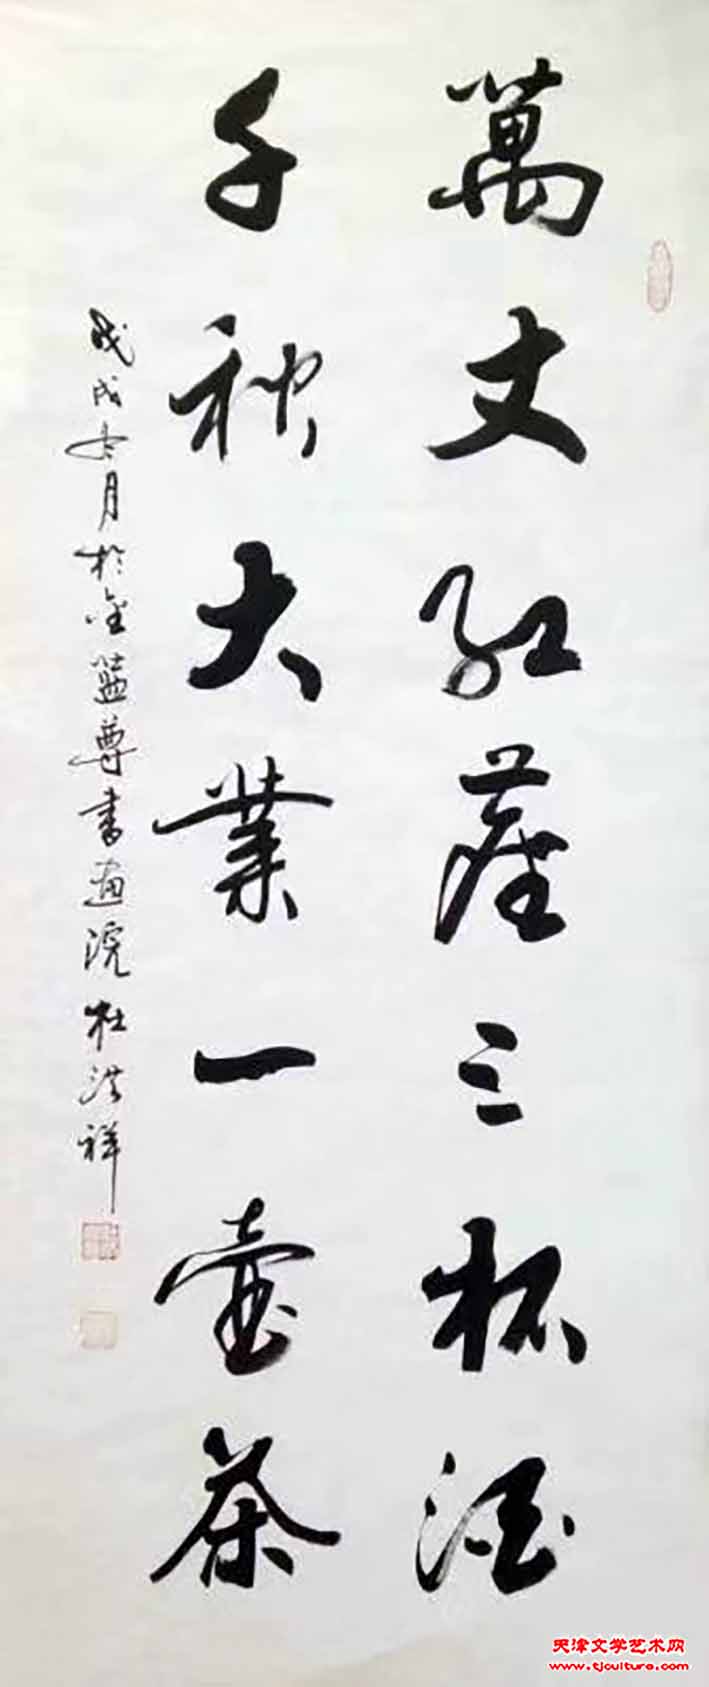 萬丈红塵三杯酒
千秋大業一壺茶
戊戌冬月於金蓝尊書画院杜洪祥
天津文学艺术网
www.tjculture.com